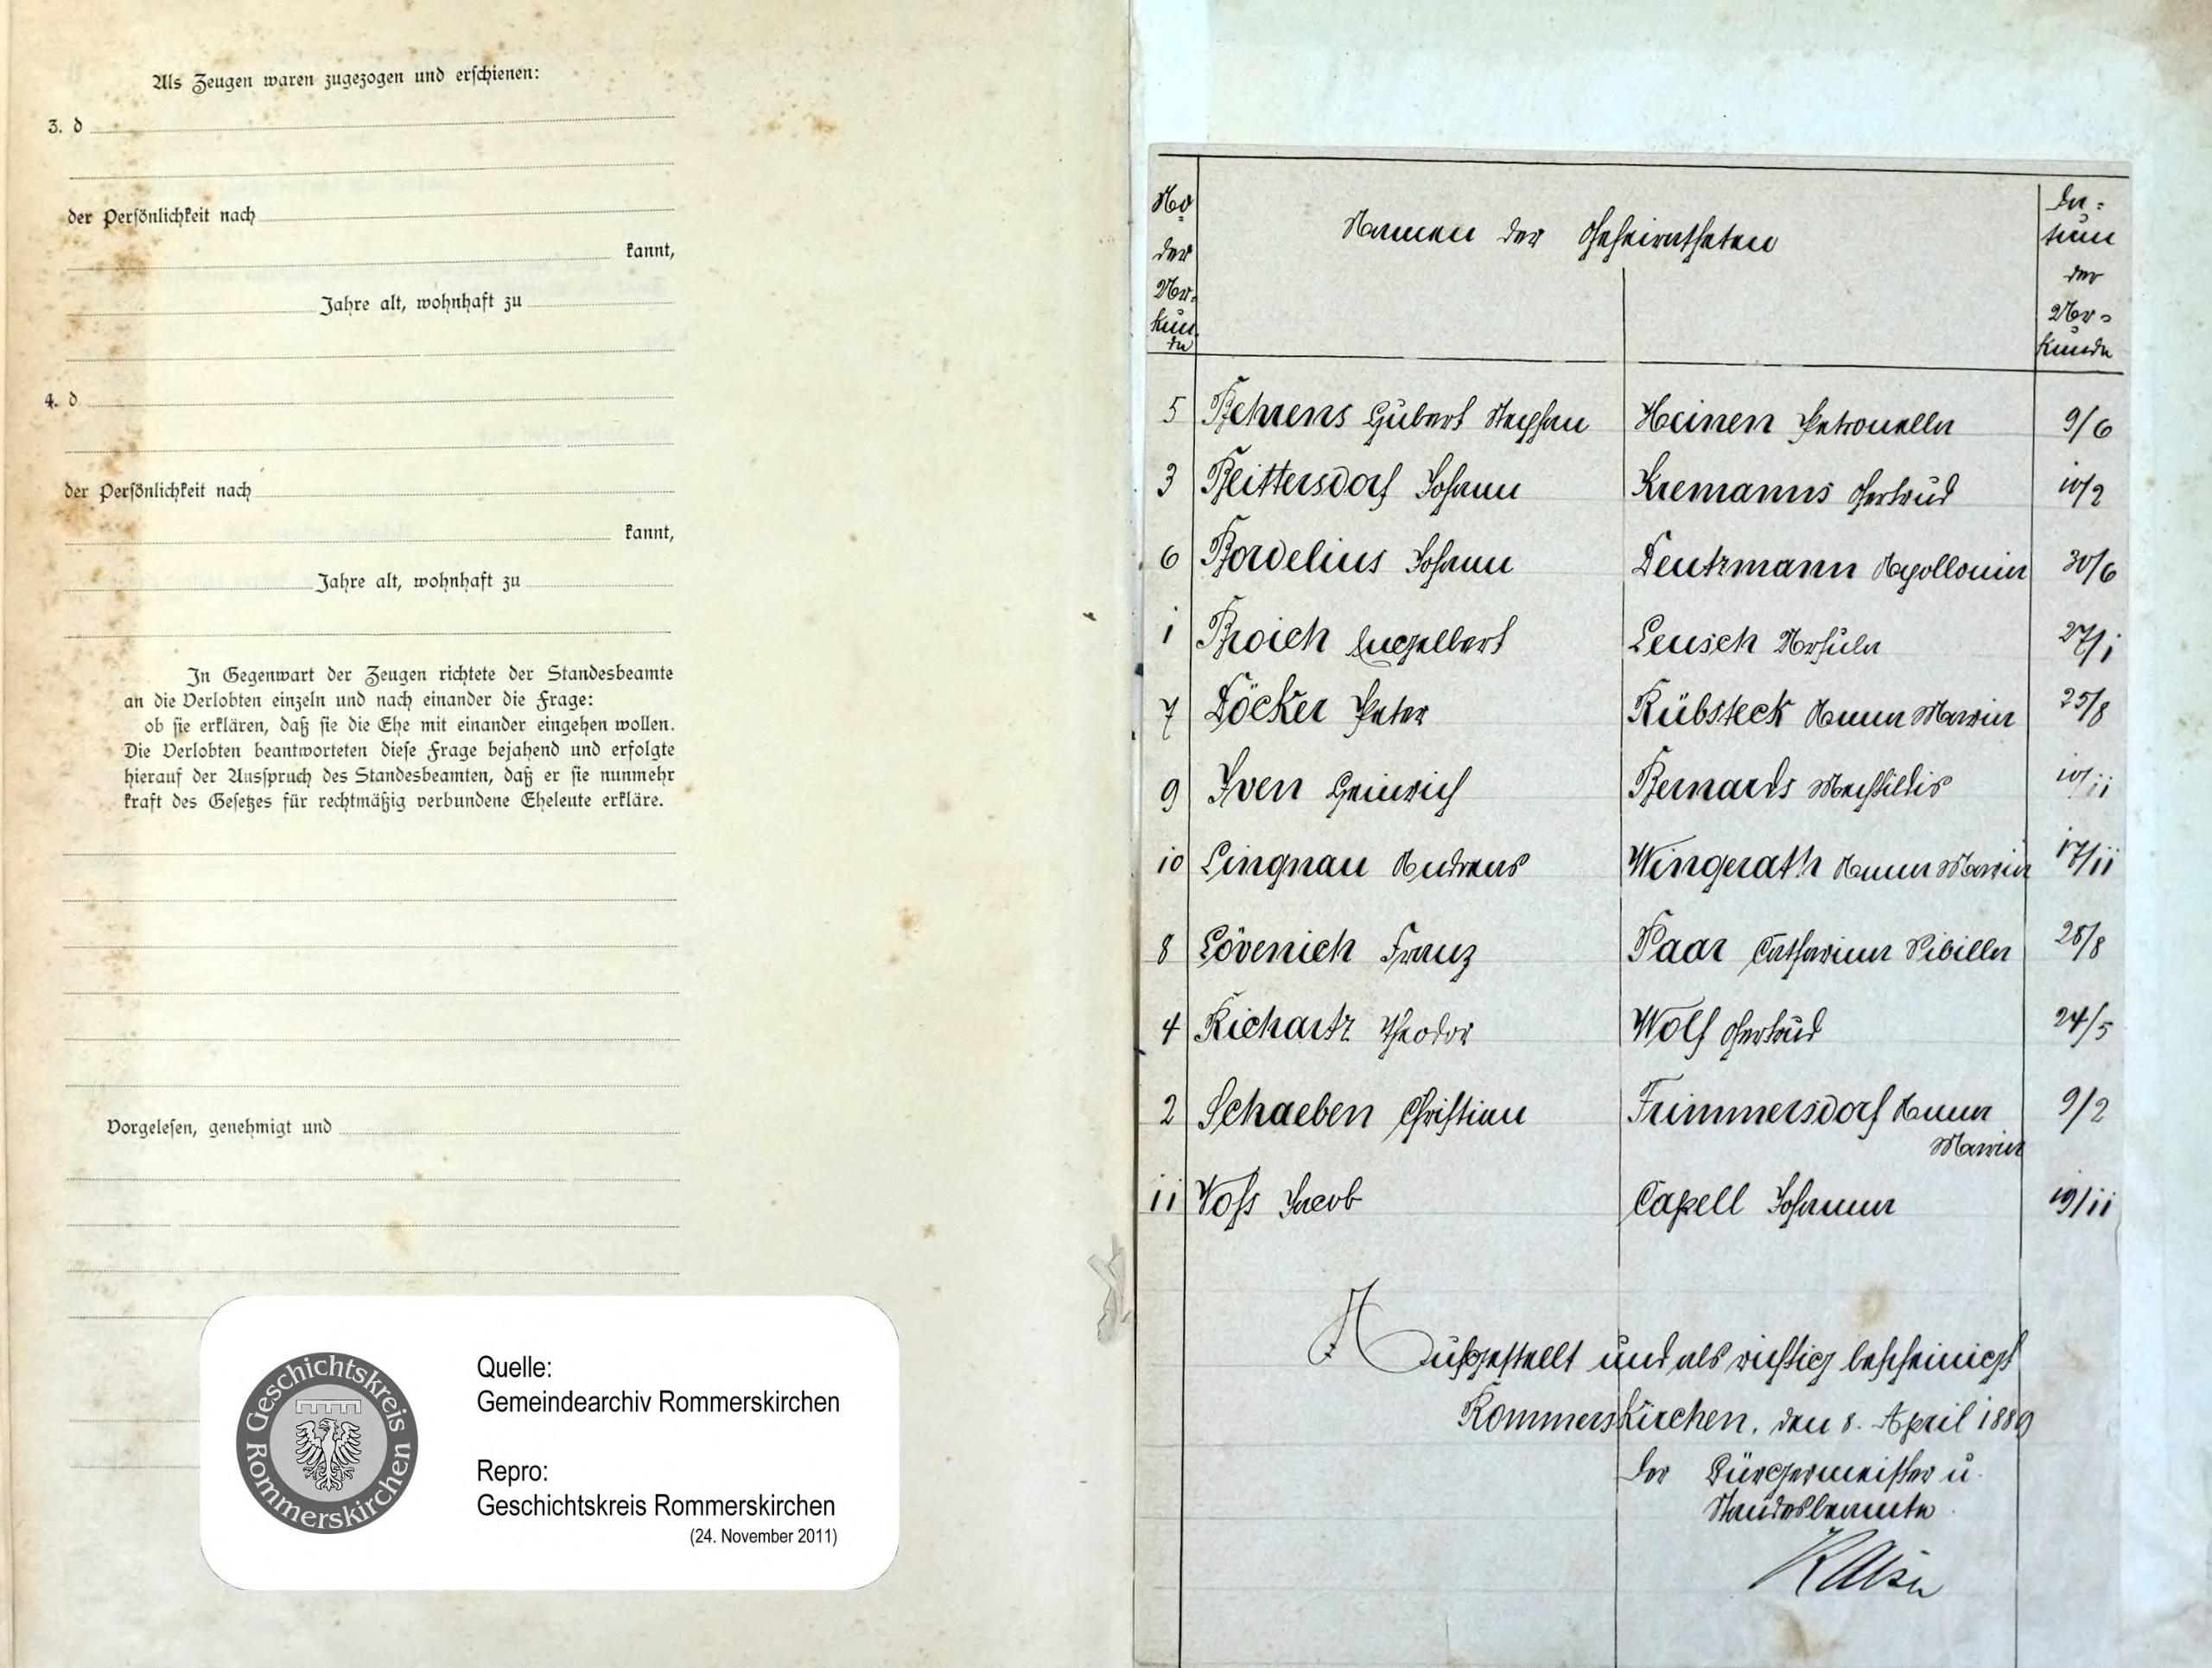 Als Zeugen waren zugezogen und erschienen:
3. d
der Persönlichkeit nach
kannt,
Jahre alt, wohnhaft zu
4. d
der Persönlichkeit nach
kannt,
Jahre alt, wohnhaft zu
In Gegenwart der Zeugen richtete der Standesbeamte
an die Verlobten einzeln und nach einander die Frage:
ob sie erklären, daß sie die Ehe mit einander eingehen wollen.
Die Verlobten beantworteten diese Frage bejahend und erfolgte
hierauf der Ausspruch des Standesbeamten, daß er sie nunmehr
kraft des Gesetzes für rechtmäßig verbundene Eheleute erkläre.
Vorgelesen, genehmigt und
Geschichtskreis Rommerskirchen
Quelle:
Gemeindearchiv Rommerskirchen
Repro:
Geschichtskreis Rommerskirchen
(24. November 2011)
No
der
Ur-
kun-
de
Namen der Geheiratheten
Da-
tum
der
Ur-
kunde
5 Behrens Hubert Stephan Heinen Petronella 9/6
3 Blittersdorf Johann Kremanns Gertrud 10/2
6 Bordelius Johann Deutzmann Apollonia 30/6
1 Broich Engelbert Leusch Ursula 27/1
7 Döcker Peter Rübsteck Anna Maria 25/8
9 Iven Heinrich Bernards Mechtildis 10/11
10 Lingnau Andreas Wingerath Anna Maria 17/11
8 Lövenich Franz Paar Catharina Sibilla 28/8
4 Richartz Theodor Wolf Gertrud 24/5
2 Schaeben Christian Frimmersdorf Anna
Maria 9/2
11 Voß Jacob Capell Johanna 19/11
Aufgestellt und als richtig bescheinigt
Rommerskirchen, den 8. April 1889
Der Bürgermeister u.
Standesbeamte.